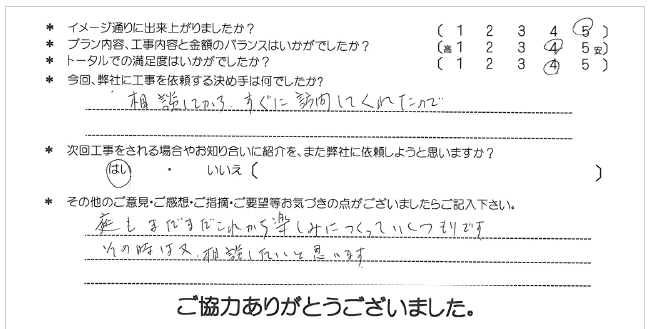 * イメージ通りに出来上がりましたか? ( 1 2 3 4 5 )
* プラン内容、工事内容と金額のバランスはいかがでしたか? (高 1 2 3 4 5 安)
* トータルでの満足度はいかがでしたか? ( 1 2 3 4 5 )
* 今回、弊社に工事を依頼する決め手は何でしたか?
相談してから、すぐに訪問してくれたので
* 次回工事をされる場合やお知り合いに紹介を、また弊社に依頼しようと思いますか?
はい ・ いいえ ( )
* その他のご意見・ご感想・ご指摘・ご要望等お気づきの点がございましたらご記入下さい。
庭もまだまだこれから楽しみにつくっていくつもりです
その時は又、相談したいと思います
ご協力ありがとうございました。